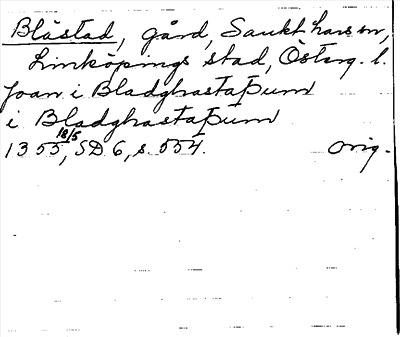 Blåstad, gård, Sankt Lars sn,
Linköpings stad, Österg. l.
Joan i Bladghastaþum
i Bladghastaþum
1355 18/5, SD 6, s. 554. Orig.